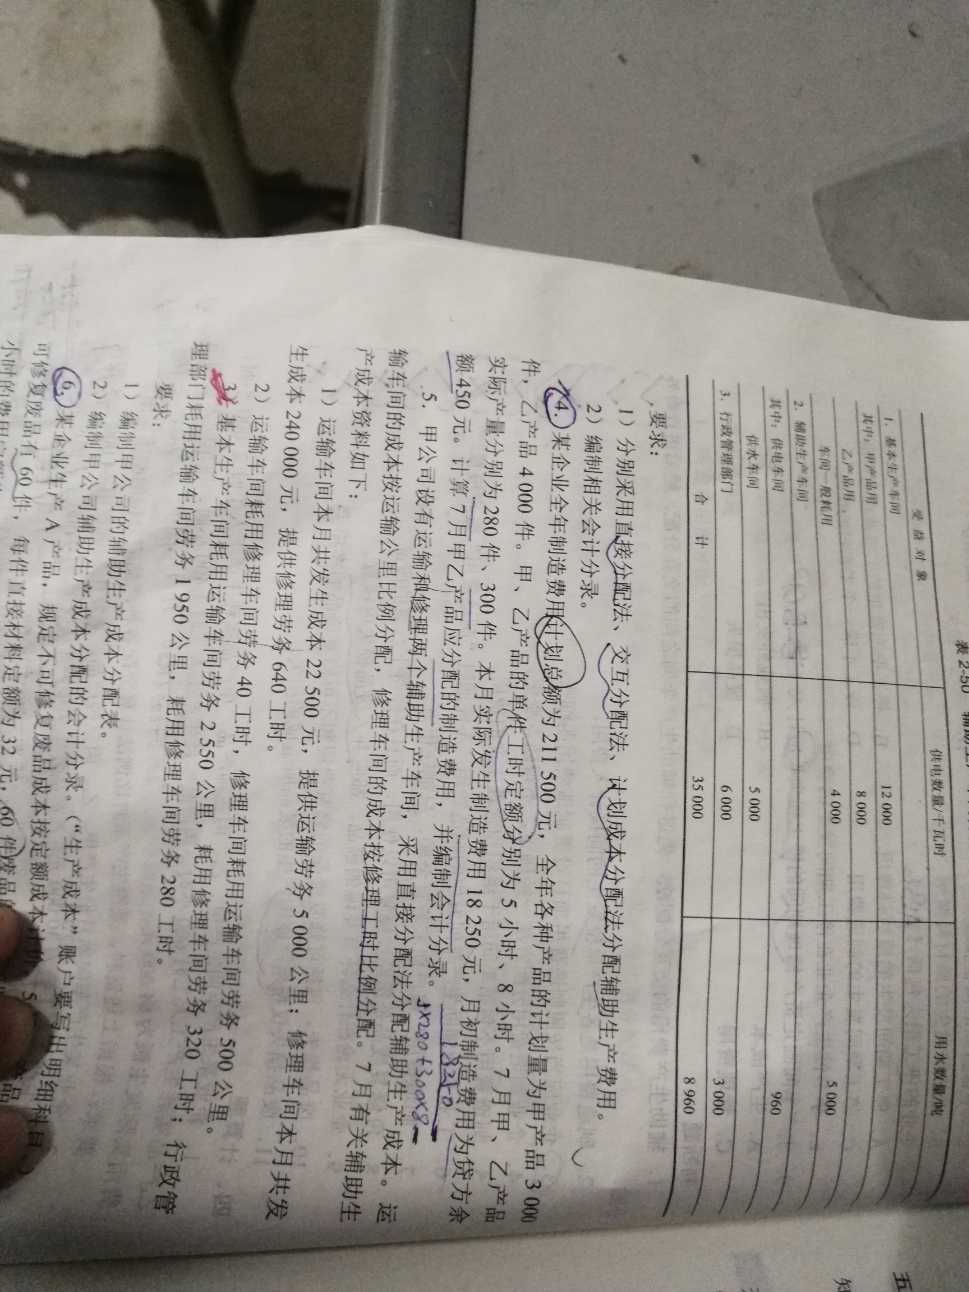 表 2-50
受益对象 供电数量/千瓦时 用水数量/吨
1. 基本生产车间
其中：甲产品用 12 000
乙产品用 8 000
车间一般耗用 4 000 5 000
2. 辅助生产车间
其中：供电车间 960
供水车间 5 000
3. 行政管理部门 6 000 3 000
合 计 35 000 8 960
要求：
1）分别采用直接分配法、交互分配法、计划成本分配法分配辅助生产费用。
2）编制相关会计分录。
4. 某企业全年制造费用计划总额为 211 500 元，全年各种产品的计划量为甲产品 3 000
件，乙产品 4 000 件。甲、乙产品的单件工时定额分别为 5 小时、8 小时。7 月甲、乙产品
实际产量分别为 280 件、300 件。本月实际发生制造费用 18 250 元，月初制造费用为贷方余
额 450 元。计算 7 月甲乙产品应分配的制造费用，并编制会计分录。
18250
×280+300×8
5. 甲公司设有运输和修理两个辅助生产车间，采用直接分配法分配辅助生产成本。运
输车间的成本按运输公里比例分配，修理车间的成本按修理工时比例分配。7 月有关辅助生
产成本资料如下：
1）运输车间本月共发生成本 22 500 元，提供运输劳务 5 000 公里；修理车间本月共发
生成本 240 000 元，提供修理劳务 640 工时。
2）运输车间耗用修理车间劳务 40 工时，修理车间耗用运输车间劳务 500 公里。
3）基本生产车间耗用运输车间劳务 2 550 公里，耗用修理车间劳务 320 工时；行政管
理部门耗用运输车间劳务 1 950 公里，耗用修理车间劳务 280 工时。
要求：
1）编制甲公司的辅助生产成本分配表。
2）编制甲公司辅助生产成本分配的会计分录。（“生产成本”账户要写出明细科目）
6. 某企业生产 A 产品，规定不可修复废品成本按定额成本计价。
可修复废品有 60 件，每件直接材料定额为 32 元，60 件废品
小时的费用
五
知